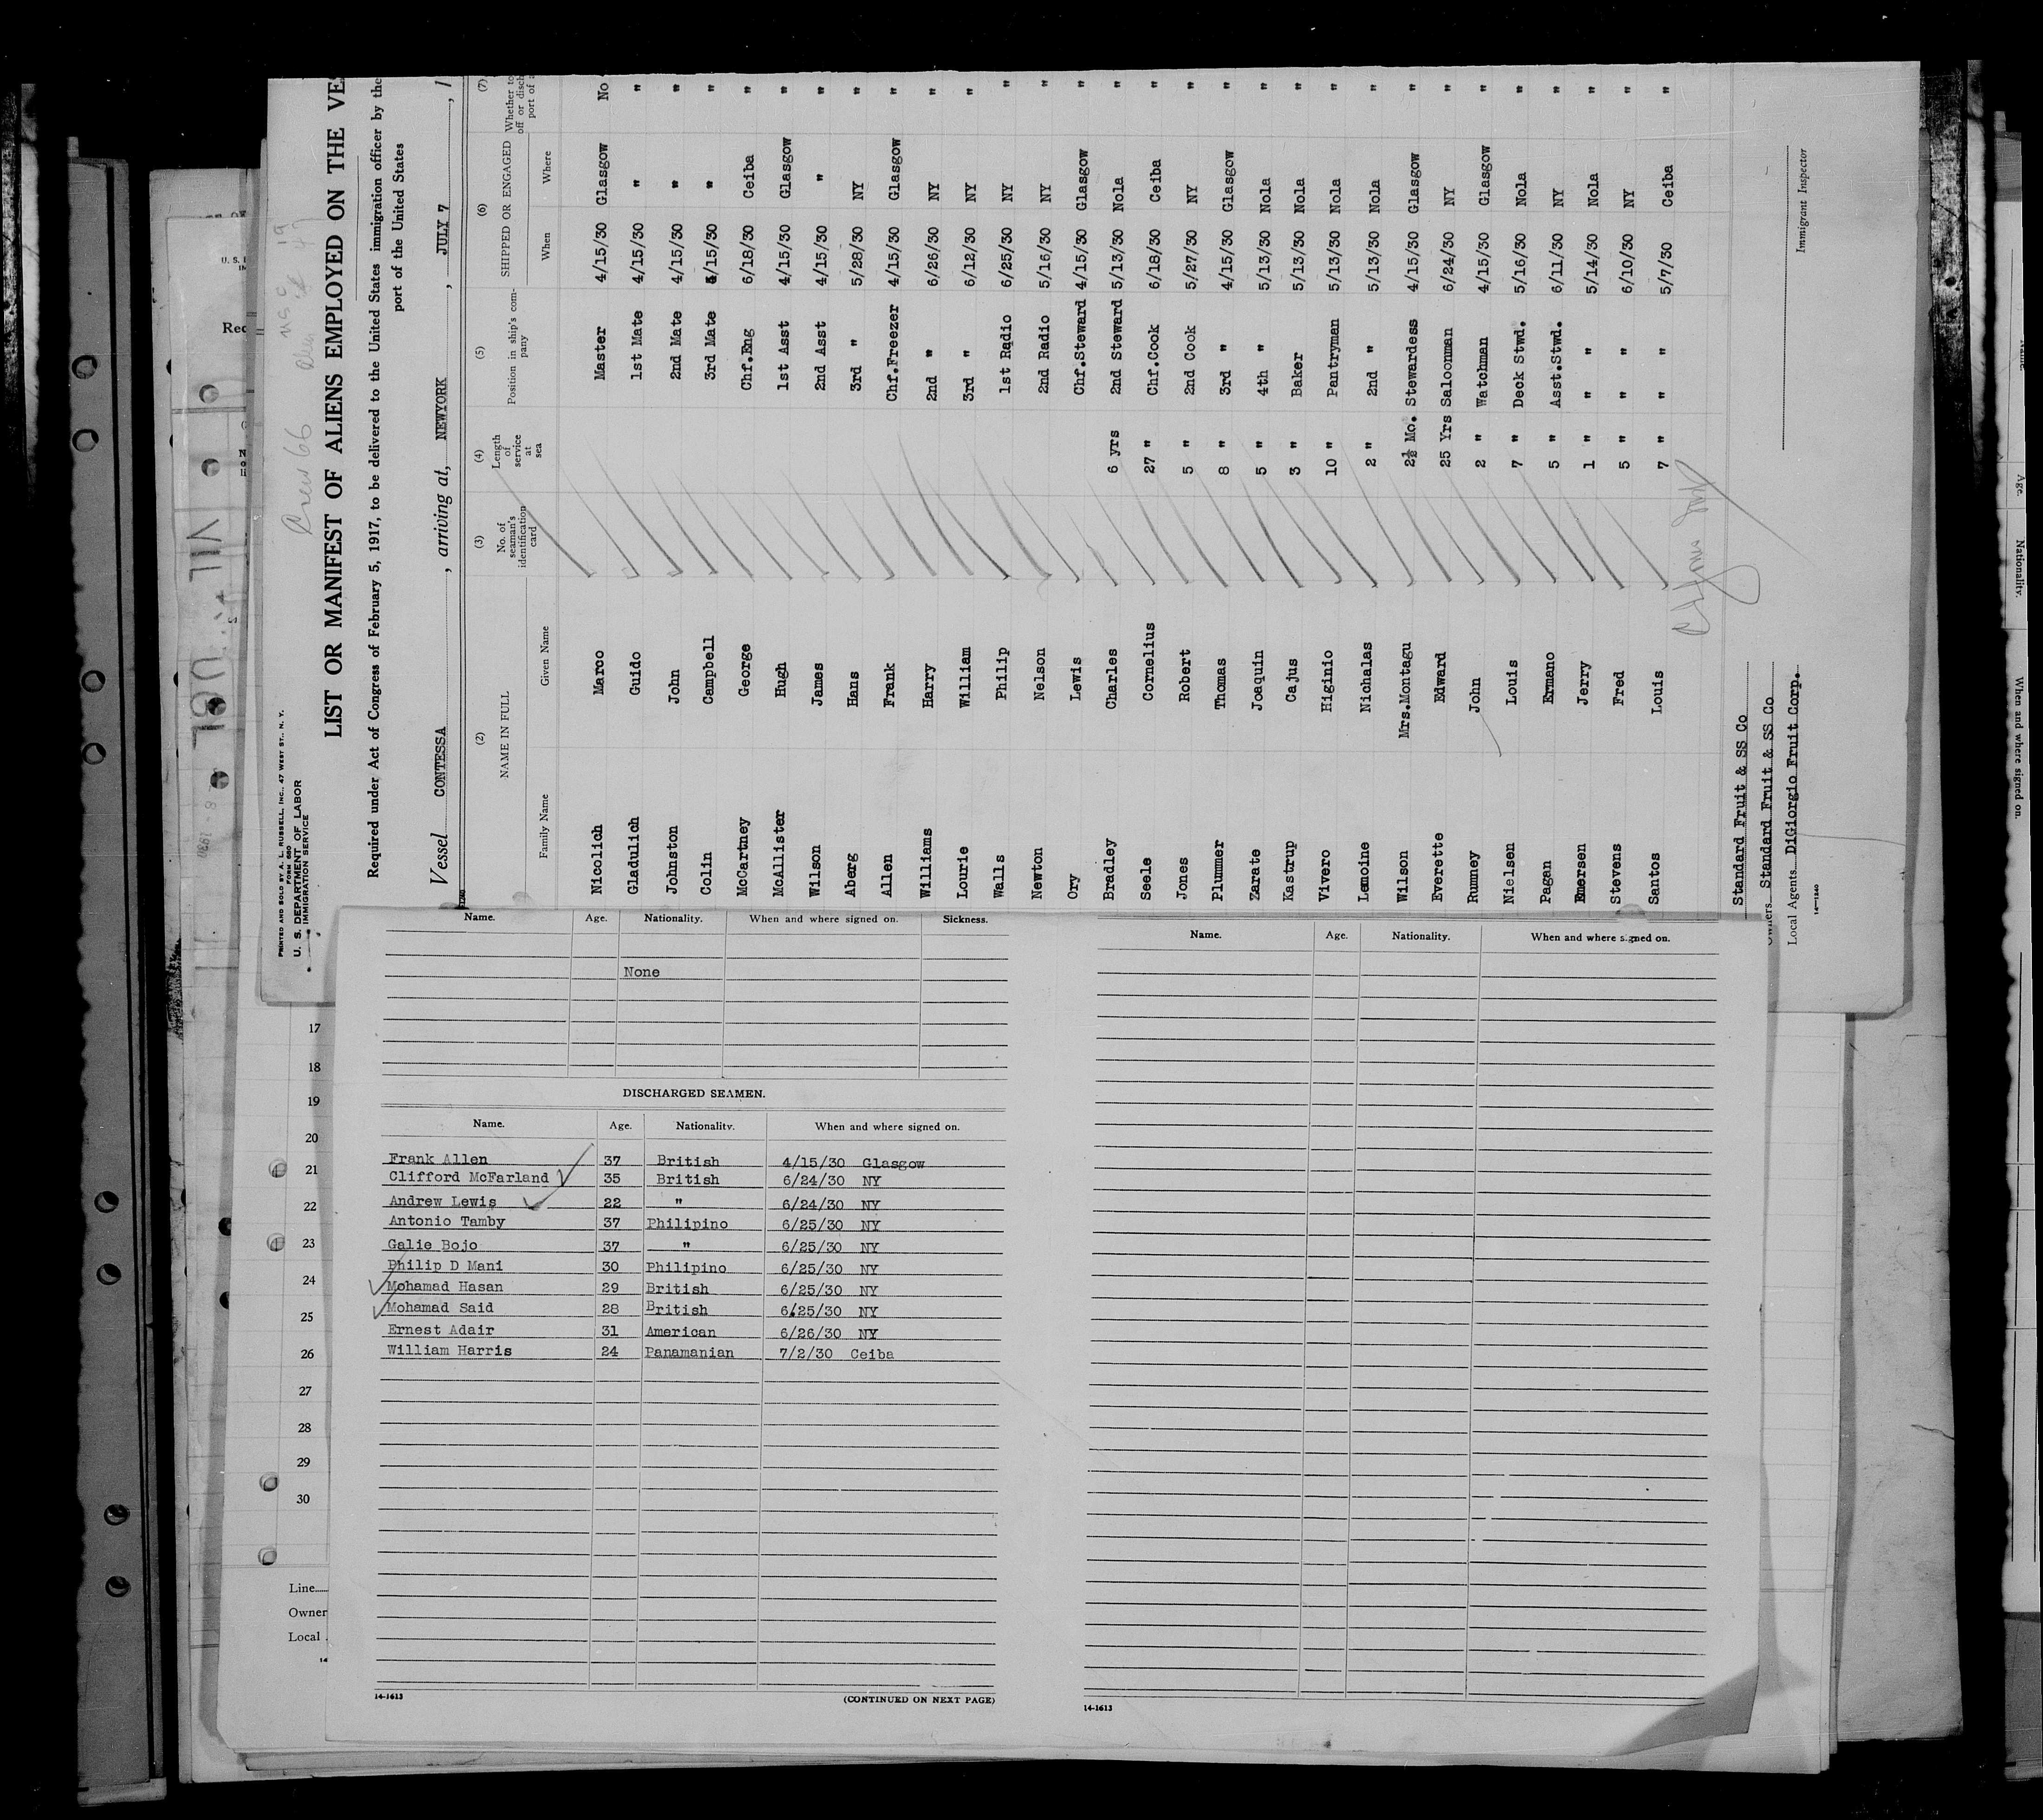 PRINTED AND SOLD BY A. L. RUSSELL, INC., 47 WEST ST., N. Y.
FORM 680
U. S. DEPARTMENT OF LABOR
IMMIGRATION SERVICE
Crew 66
LIST OR MANIFEST OF ALIENS EMPLOYED ON THE VES
Required under Act of Congress of February 5, 1917, to be delivered to the United States immigration officer by the
port of the United States
Vessel CONTESSA , arriving at, NEWYORK , JULY 7 , 1
(2) (3) (4) (5) (6) (7)
NAME IN FULL No. of seaman's identification card Length of service at sea Position in ship's company SHIPPED OR ENGAGED Whether to
Family Name Given Name When Where
Nicolich Marco Master 4/15/30 Glasgow No
Gladulich Guido 1st Mate 4/15/30 " "
Johnston John 2nd Mate 4/15/30 " "
Colin Campbell 3rd Mate 4/15/30 " "
McCartney George Chf.Eng 6/18/30 Ceiba "
McAllister Hugh 1st Asst 4/15/30 Glasgow "
Wilson James 2nd Asst 4/15/30 " "
Aberg Hans 3rd " 5/28/30 NY "
Allen Frank Chf.Freezer 4/15/30 Glasgow "
Williams Harry 2nd " 6/26/30 NY "
Lourie William 3rd " 6/12/30 NY "
Walls Philip 1st Radio 6/25/30 NY "
Newton Nelson 2nd Radio 5/16/30 NY "
Cry Lewis Chf.Steward 4/15/30 Glasgow "
Bradley Charles 6 yrs 2nd Steward 5/13/30 Nola "
Seele Cornelius 27 " Chf.Cook 6/18/30 Ceiba "
Jones Robert 5 " 2nd Cook 5/27/30 NY "
Plummer Thomas 8 " 3rd " 4/15/30 Glasgow "
Zarate Joaquin 5 " 4th " 5/13/30 Nola "
Kastrup Cajus 3 " Baker 5/13/30 Nola "
Vivero Higinio 10 " Pantryman 5/13/30 Nola "
Lemoine Nichalas 2 " 2nd " 5/13/30 Nola "
Wilson Mrs.Montagu 2½ Mo. Stewardess 4/15/30 Glasgow "
Everette Edward 25 Yrs Saloonman 6/24/30 NY "
Rumney John 2 " Watchman 4/15/30 Glasgow "
Nielsen Louis 7 " Deck Stwd. 5/16/30 Nola "
Pagan Ermano 5 " Asst.Stwd. 6/11/30 NY "
Emersen Jerry 1 " " " 5/14/30 Nola "
Stevens Fred 5 " " " 6/10/30 NY "
Santos Louis 7 " " " 5/7/30 Ceiba "
Standard Fruit & SS Co
Owners Standard Fruit & SS Co
Local Agents DiGiorgio Fruit Corp.
14—1240
Immigrant Inspector
Name. Age. Nationality. When and where signed on. Sickness.
None
DISCHARGED SEAMEN.
Name. Age. Nationality. When and where signed on.
Frank Allen 37 British 4/15/30 Glasgow
Clifford McFarland 35 British 6/24/30 NY
Andrew Lewis 22 " 6/24/30 NY
Antonio Tamby 37 Philipino 6/25/30 NY
Galie Bojo 37 " 6/25/30 NY
Philip D Mani 30 Philipino 6/25/30 NY
Mohamad Hasan 29 British 6/25/30 NY
Mohamad Said 28 British 6/25/30 NY
Ernest Adair 31 American 6/26/30 NY
William Harris 24 Panamanian 7/2/30 Ceiba
14-1613
(CONTINUED ON NEXT PAGE)
Name. Age. Nationality. When and where signed on.
14-1613
17
18
19
20
21
22
23
24
25
26
27
28
29
30
Line
Owner
Local
14
Age. Nationality. When and where signed on.